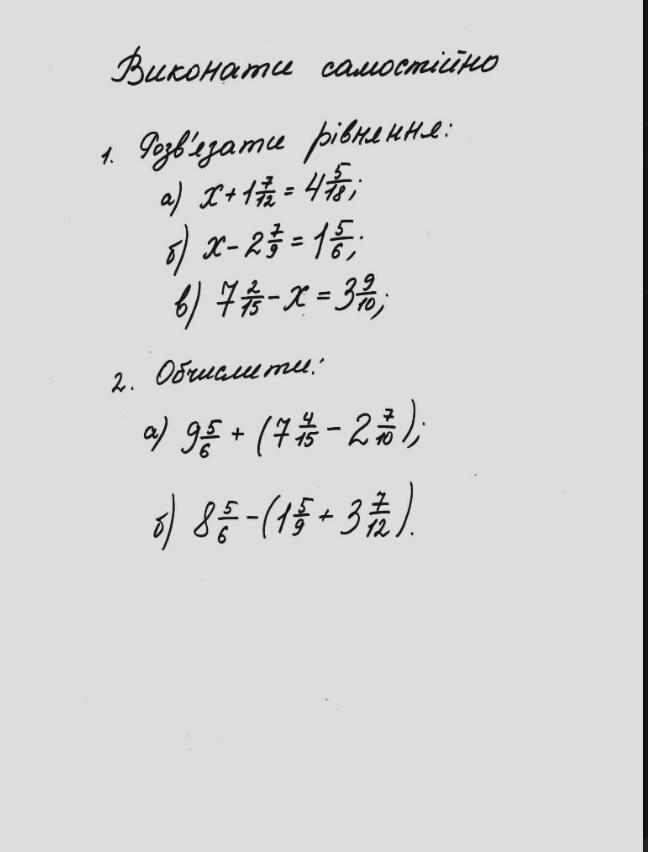 Виконати самостійно
1. Розв'язати рівняння:
а) x + 1 7/12 = 4 5/18;
б) x - 2 7/9 = 1 5/6;
в) 7 2/15 - x = 3 9/10;
2. Обчислити:
а) 9 5/6 + (7 4/15 - 2 7/10);
б) 8 5/6 - (1 5/9 + 3 7/12).